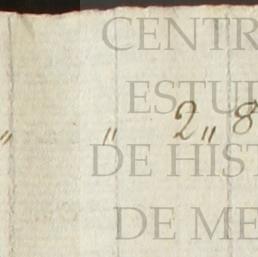 CENTR
ESTU
„ „ 2„ 8
DE HIST
DE ME